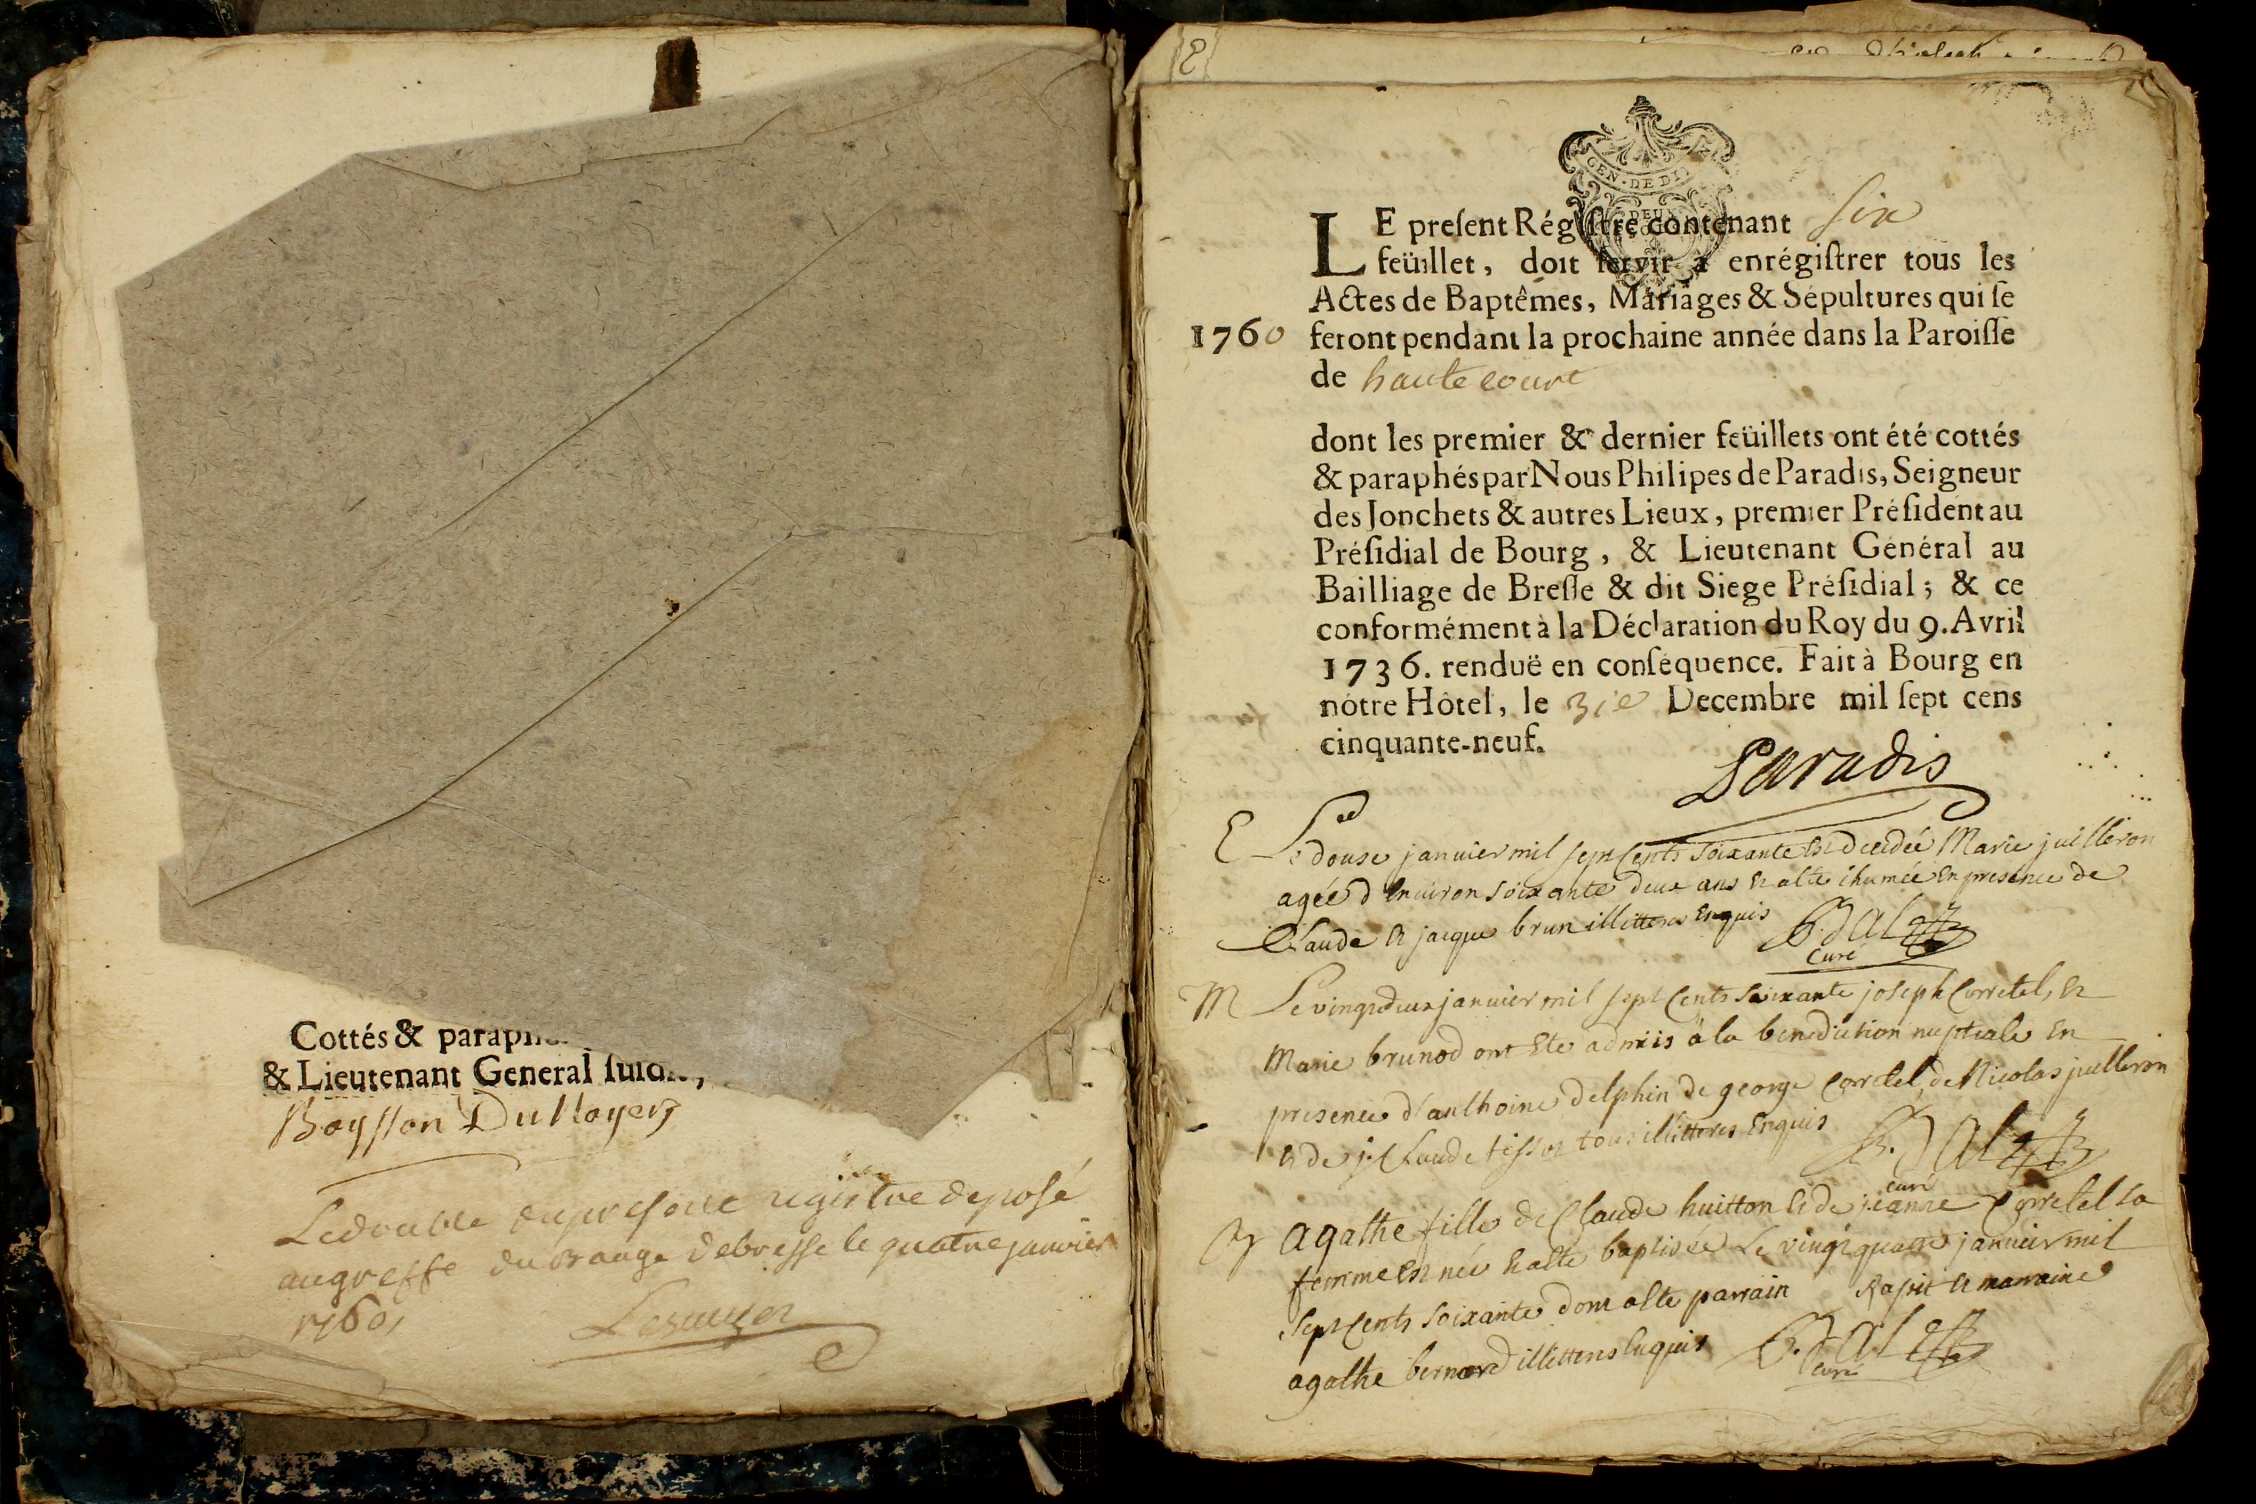 Cottés & paraph
& Lieutenant General susd.,
Boysson Du Noyer
Le double du present registre deposé
au greffe du Bailage de bresse le quatre janvier
1760,
GEN · DE DI
DEUX
LE preſent Régiſtre contenant six
feüillet, doit ſervir à enrégiſtrer tous les
Actes de Baptêmes, Mariages & Sépultures qui ſe
1760 feront pendant la prochaine année dans la Paroiſſe
de hautecourt
dont les premier & dernier feüillets ont été cottés
& paraphés par Nous Philipes de Paradis, Seigneur
des Jonchets & autres Lieux, premier Préſident au
Préſidial de Bourg, & Lieutenant Général au
Bailliage de Breſſe & dit Siege Préſidial; & ce
conformément à la Déclaration du Roy du 9. Avril
1736. renduë en conſéquence. Fait à Bourg en
nôtre Hôtel, le 31e Decembre mil ſept cens
cinquante-neuf.
Paradis
E Le douse janvier mil sept Cents soixante est decedée Marie juilleron
agée d Environ soixante deux ans Et a esté ihumée En presence de
Claude Et jacque brun illitteres Enquis
Curé
M Le vingtdeux janvier mil sept Cents soixante joseph Corretel, Et
Marie brunod ont Eté admis a la benediction nuptiale En
presence d'anthoine delphin de george Corretel, de Nicolas juilleron
Et de j. Claude tissot tous illitteres Enquis
curé
agathe fille de Claude huitton Et de jeanne Corretel sa
femme Est née Et a esté baptisée Le vingt quatre janvier mil
sept Cents soixante dont a esté parrain Et marraine
agathe bernard illitteres Enquis
curé